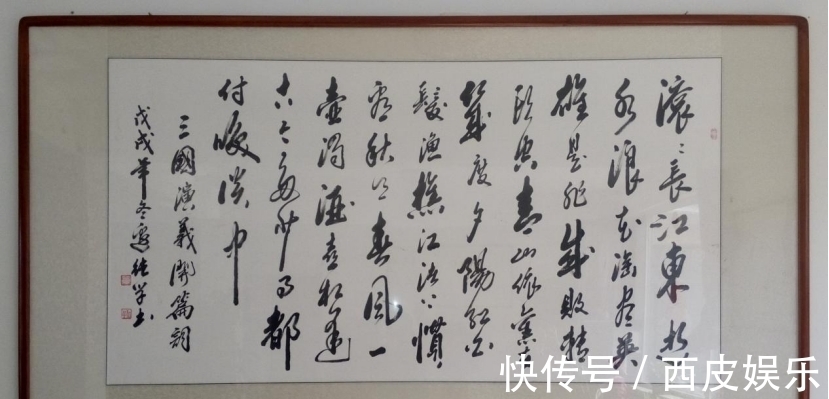 滚滚长江東逝
水浪花淘尽英
雄是非成敗转
头空青山依旧在
幾度夕陽红白
髮渔樵江渚上慣
看秋月春风一
壶濁酒喜相逢
古今多少事都
付笑谈中
三國演義開篇詞
戊戌年冬
快传号 / 西皮娱乐